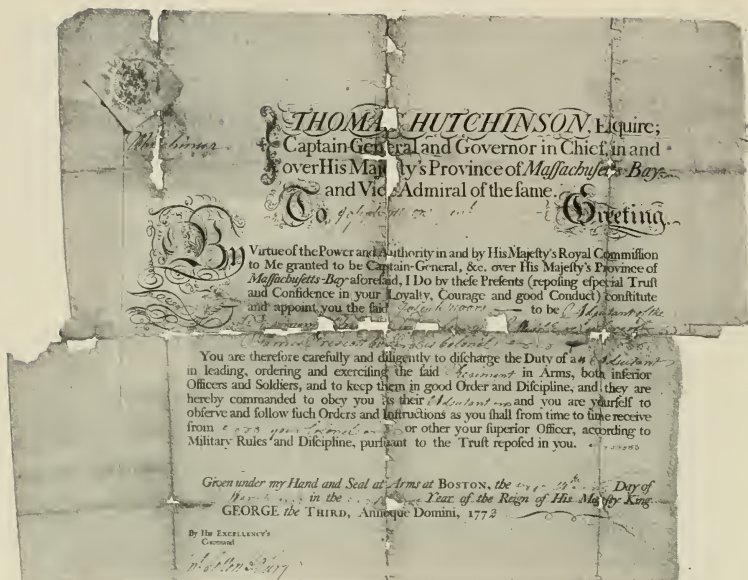 THOMAS HUTCHINSON, Esquire;
Captain-General and Governor in Chief, in and
over His Majesty's Province of Massachusetts-Bay
and Vice-Admiral of the same.
To Greeting.
Hutchinson
By Virtue of the Power and Authority in and by His Majesty's Royal Commission
to Me granted to be Captain-General, &c. over His Majesty's Province of
Massachusetts-Bay aforesaid, I Do by these Presents (reposing especial Trust
and Confidence in your Loyalty, Courage and good Conduct) constitute
and appoint you the said Joseph Moors to be Adjutant of the
Colonel
You are therefore carefully and diligently to discharge the Duty of an Adjutant
in leading, ordering and exercising the said Regiment in Arms, both inferior
Officers and Soldiers, and to keep them in good Order and Discipline, and they are
hereby commanded to obey you as their Adjutant and you are yourself to
observe and follow such Orders and Instructions as you shall from time to time receive
from your Colonel or other your superior Officer, according to
Military Rules and Discipline, pursuant to the Trust reposed in you.
Given under my Hand and Seal at Arms at BOSTON, the Day of
in the Year of the Reign of His Majesty King
GEORGE the THIRD, Annoque Domini, 1773
By His EXCELLENCY'S
Command